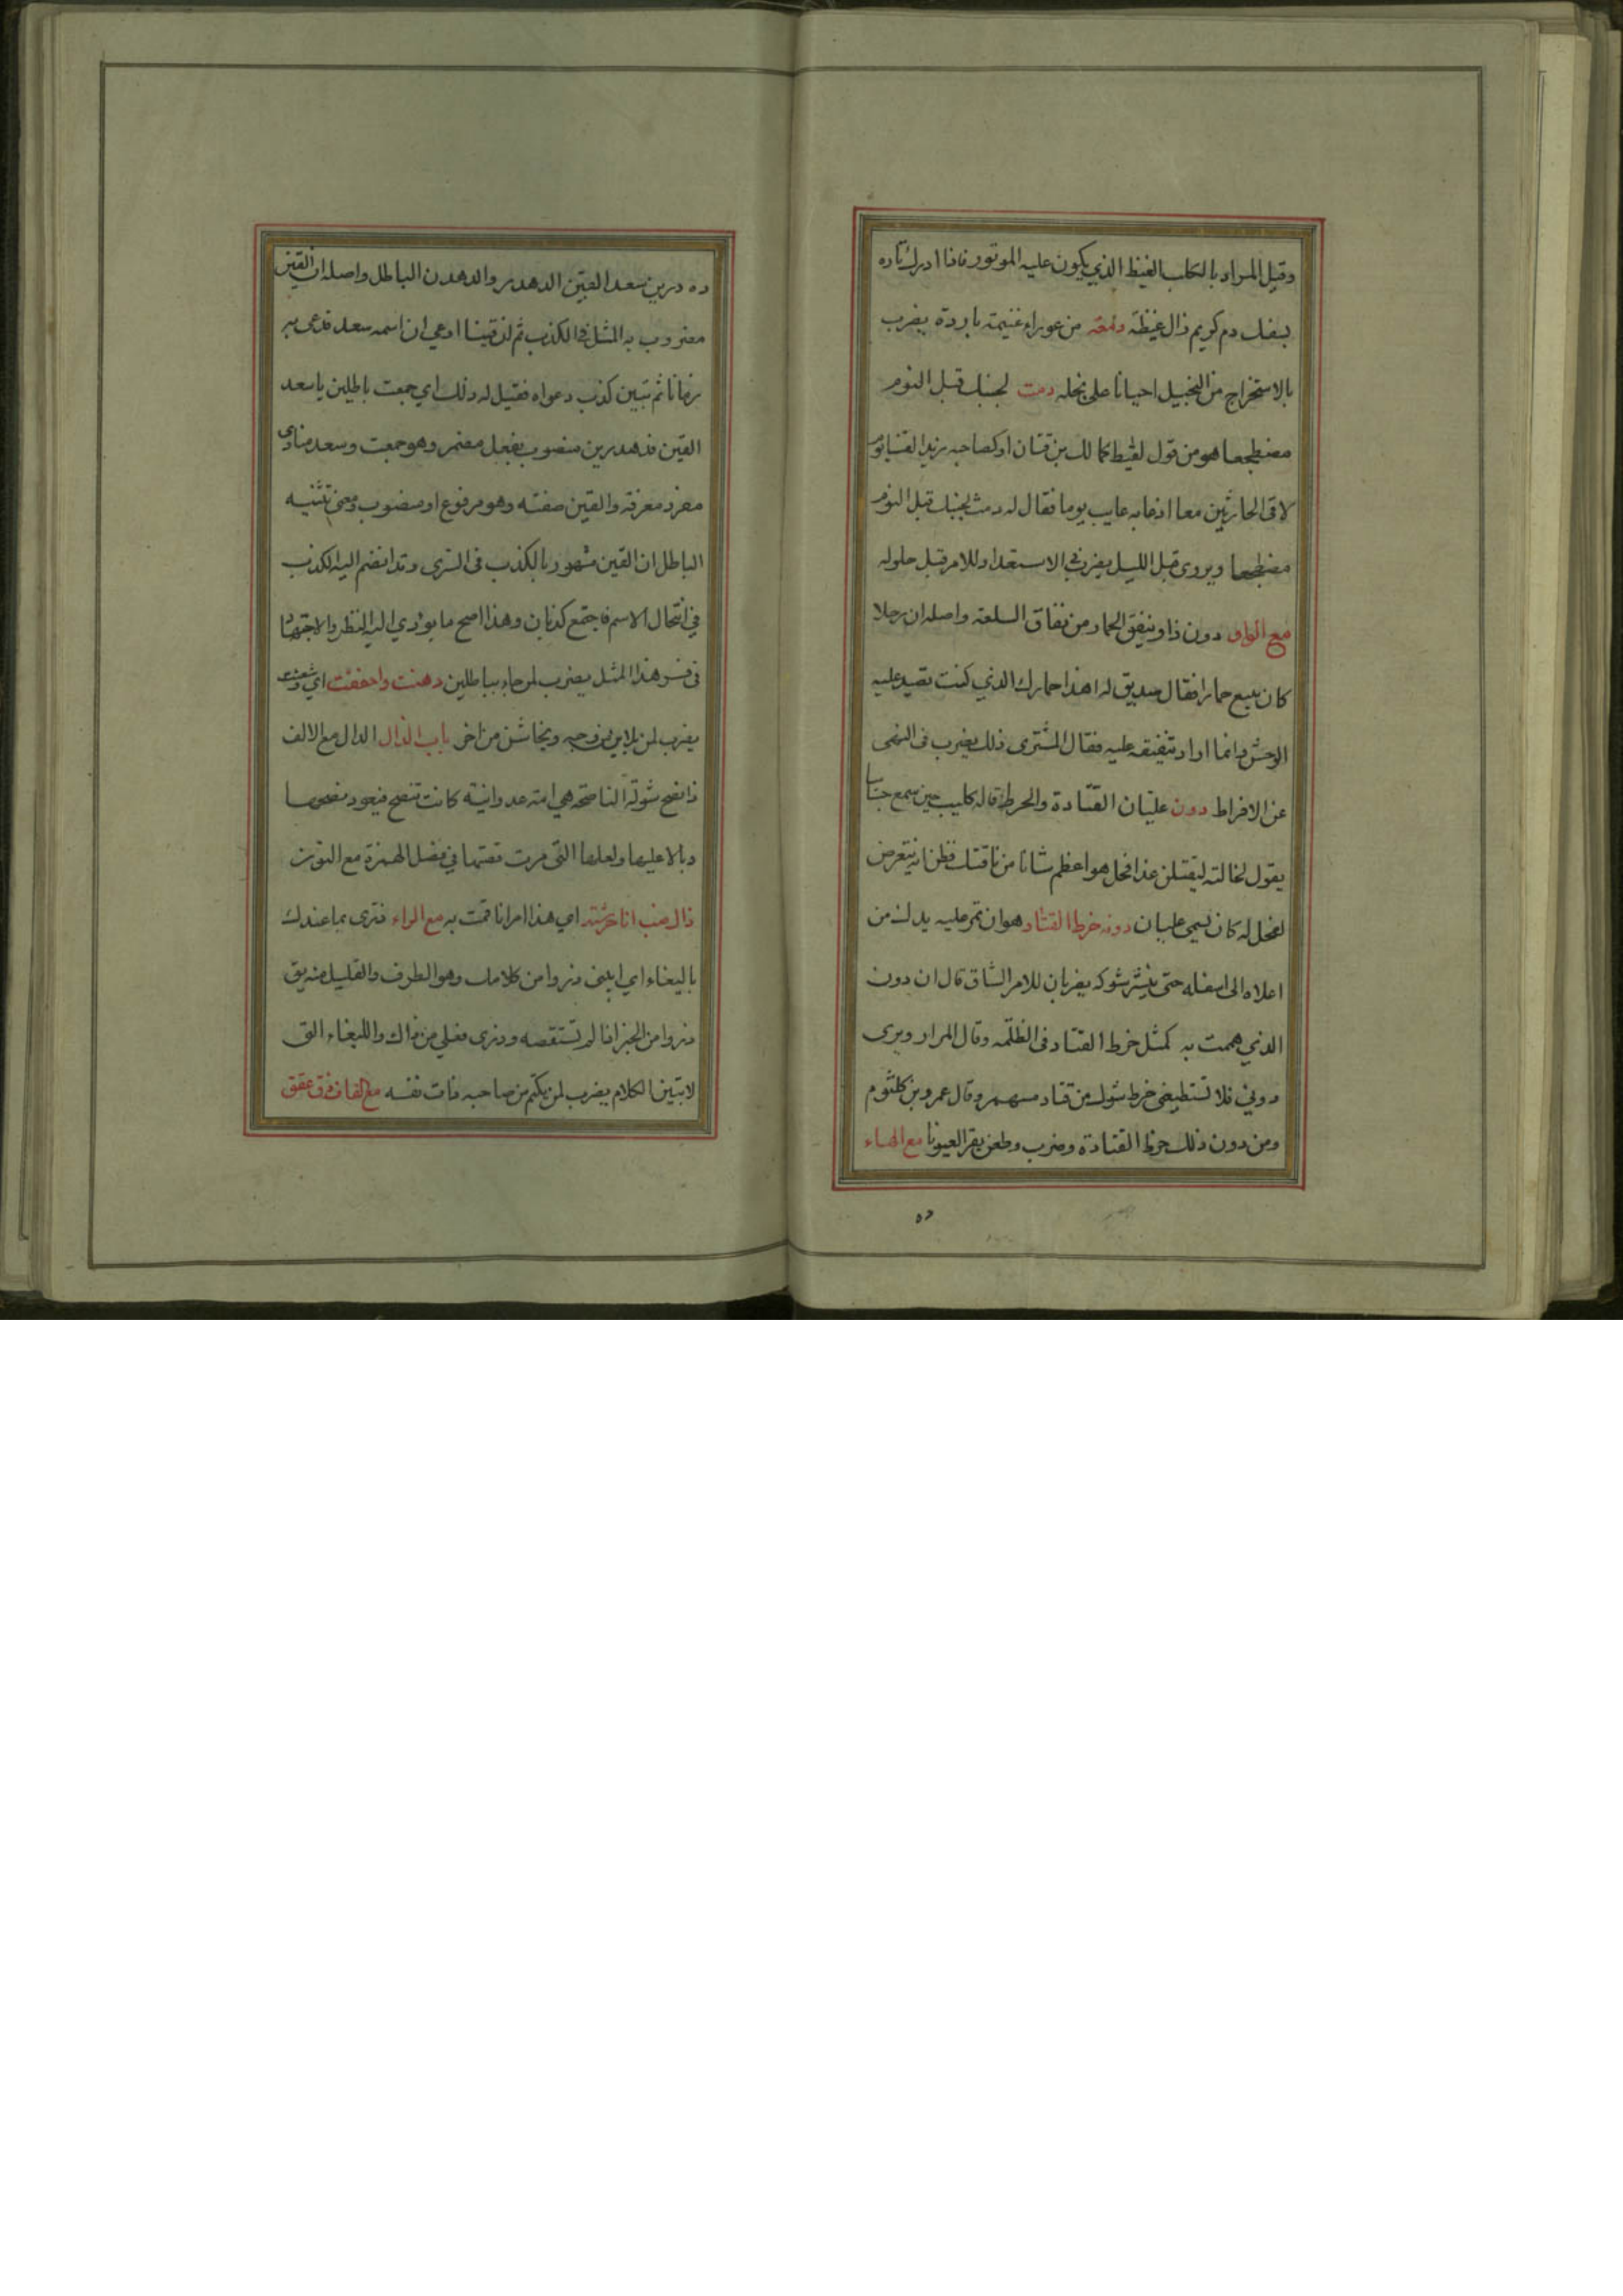 وقيل المراد بالكلب الغيظ الذي يكون عليه الموتور فاذا ادرك ثاره
بسفك دم كريم زال غيظه دمعة من عوراء غنيمة باردة يضرب
بالاستخراج من البخيل احيانا على بخله دمث لجنبك قبل النوم
مضطجعا هو من قول لقيط كمالك بن قنان او كصاحبه زيد القنا يوم
لاقى الحارثين معا اذ عابه عايب يوما فقال له دمث لجنبك قبل النوم
مضطجعا ويروى قبل الليل يضرب في الاستعداد للامر قبل حلوله
مع الواو دون ذا وينفق الحمار من نفاق السلعة واصله ان رجلا
كان يبيع حمارا فقال صديق له اهذا حمارك الذي كنت تصيد عليه
الوحش وانما اراد تنفيقه عليه فقال المشترى ذلك يضرب فى النهى
عن الافراط دون عليان القتادة والخرط قاله كليب حين سمع جساسا
يقول لخالته ليقتلن غدا فحل هو اعظم شانا من ناقتك فظن انه يتعرض
لفحل له كان يسمى عليان دونه خرط القتاد هو ان تمر عليه يدك من
اعلاه الى اسفله حتى ينتثر شوكه يضربان للامر الشاق قال ان دون
الذي هممت به كمثل خرط القتاد فى الظلمه وقال المرار ويرى
دوني فلا تستطيعنى خرط شوك من قتاد مسمهر وقال عمرو بن كلثوم
ومن دون ذلك خرط القتادة وضرب وطعن يقر العيونا مع الهاء
ده
ده درين سعد القين الدهدر والدهدن الباطل واصله ان القين
مضروب به المثل في الكذب ثم ان قينا ادعي ان اسمه سعد فدعى به
زمانا ثم تبين كذب دعواه فقيل له ذلك اي جمعت باطلين يا سعد
القين فدهدرين منصوب بفعل مضمر وهو جمعت وسعد منادى
مفرد معرفة والقين صفته وهو مرفوع او منصوب ومعنى تثنيه
الباطل ان القين مشهور بالكذب فى السرى وقد انضم اليه الكذب
في انتحال الاسم فاجتمع كذبان وهذا اصح ما يؤدي اليه النظر والاجتهاد
فى تفسير هذا المثل يضرب لمن جاء بباطلين دهنت واحففت اي وشعثت
يضرب لمن يلاين من وجه ويخاشن من اخر باب الذال الذال مع الالف
ذا نضح شولة الناصحة هي امة عدوانية كانت تنصح فيعود نصحها
وبالا عليها ولعلها التى مرت قصتها في فصل الهمزة مع النون
ذاك ضب انا حرشته اي هذا امر انا قمت به مع الراء ذرى بما عندك
يا ليغاء اي ابيني ذروا من كلامك وهو الطرف والقليل منه يق
ذروا من الخبر اذا لم تستقصه وذرى فعلي من ذاك والليغاء التى
لا تبين الكلام يضرب لمن يكتم من صاحبه ذات نفسه مع القاف ذق عقق